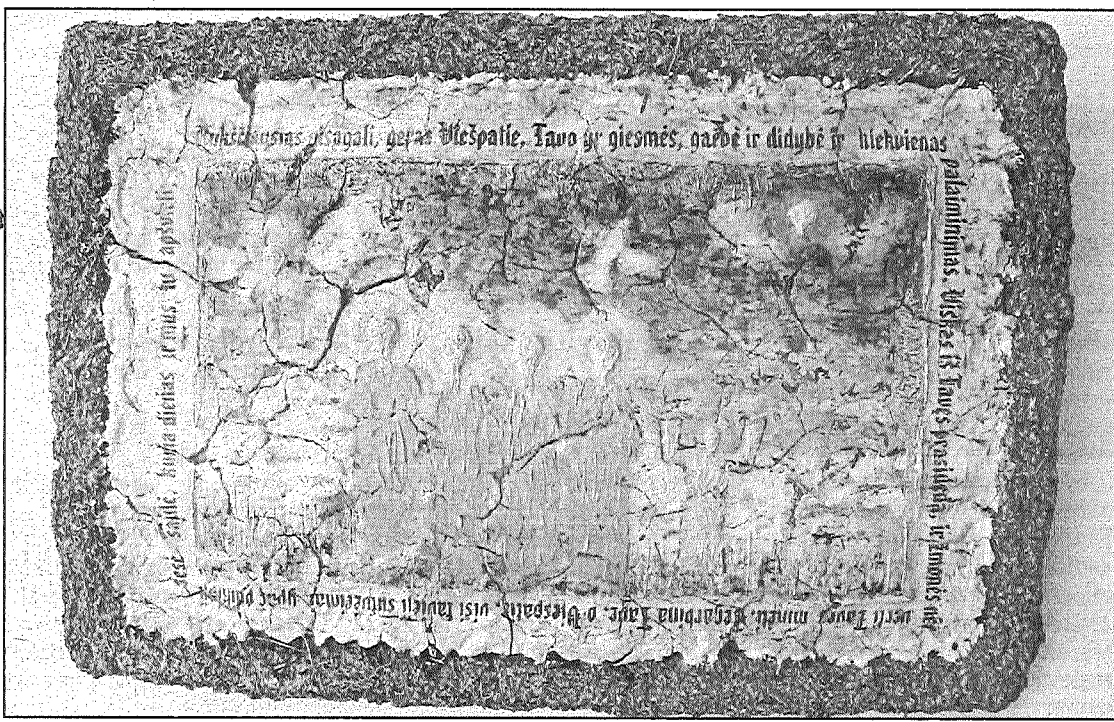 Aukščiausias visagali, geras Viešpatie, Tavo yr giesmės, garbė ir didybė ir kiekvienas
palaiminimas. Viskas iš Tavęs prasideda, ir žmonės nėr
verti Tavęs minėti. Tegarbina Tave, o Viešpatie, visi tavieji sutvėrimai ypač
sesė saulė, kuria dienas mus tu apšvieti.